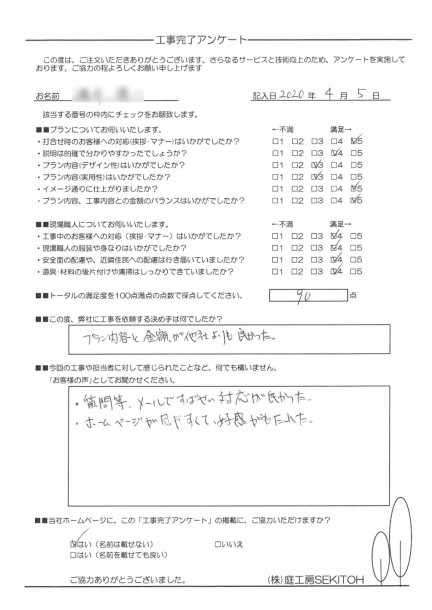 工事完了アンケート
この度は、ご注文いただきありがとうございます。さらなるサービスと技術向上のため、アンケートを実施して
おります。ご協力の程よろしくお願い申し上げます
お名前 記入日2020年 4月 5日
該当する番号の枠内にチェックをお願致します。
■■プランについてお伺いいたします。 ←不満 満足→
・打合せ時のお客様への対応(挨拶・マナー)はいかがでしたか? □1 □2 □3 □4 ☑5
・説明は的確で分かりやすかったでしょうか? □1 □2 □3 ☑4 □5
・プラン内容(デザイン性)はいかがでしたか? □1 □2 ☑3 □4 □5
・プラン内容(実用性)はいかがでしたか? □1 □2 ☑3 □4 □5
・イメージ通りに仕上がりましたか? □1 □2 □3 □4 ☑5
・プラン内容、工事内容との金額のバランスはいかがですか? □1 □2 □3 □4 ☑5
■■現場職人についてお伺いいたします。 ←不満 満足→
・工事中のお客様への対応(挨拶・マナー)はいかがでしたか? □1 □2 □3 ☑4 □5
・現場職人の服装や身なりはいかがでしたか? □1 □2 □3 ☑4 □5
・安全面の配慮や、近隣住民への配慮は行き届いていましたか? □1 □2 □3 ☑4 □5
・道具・材料の後片付けや清掃はしっかりできていましたか? □1 □2 □3 ☑4 □5
■■トータルの満足度を100点満点の点数で採点してください。 90 点
■■この度、弊社に工事を依頼する決め手は何でしたか?
プラン内容と金額が他社よりも良かった。
■■今回の工事や担当者に対して感じられたことなど、何でも構いません。
「お客様の声」としてお聞かせください。
・質問等、メールですばやい対応が良かった。
・ホームページが見やすくて、好感がもたれた。
■■当社ホームページに、この「工事完了アンケート」の掲載に、ご協力いただけますか?
☑はい(名前は載せない) □いいえ
□はい(名前を載せても良い)
ご協力ありがとうございました。 (株)庭工房SEKITOH